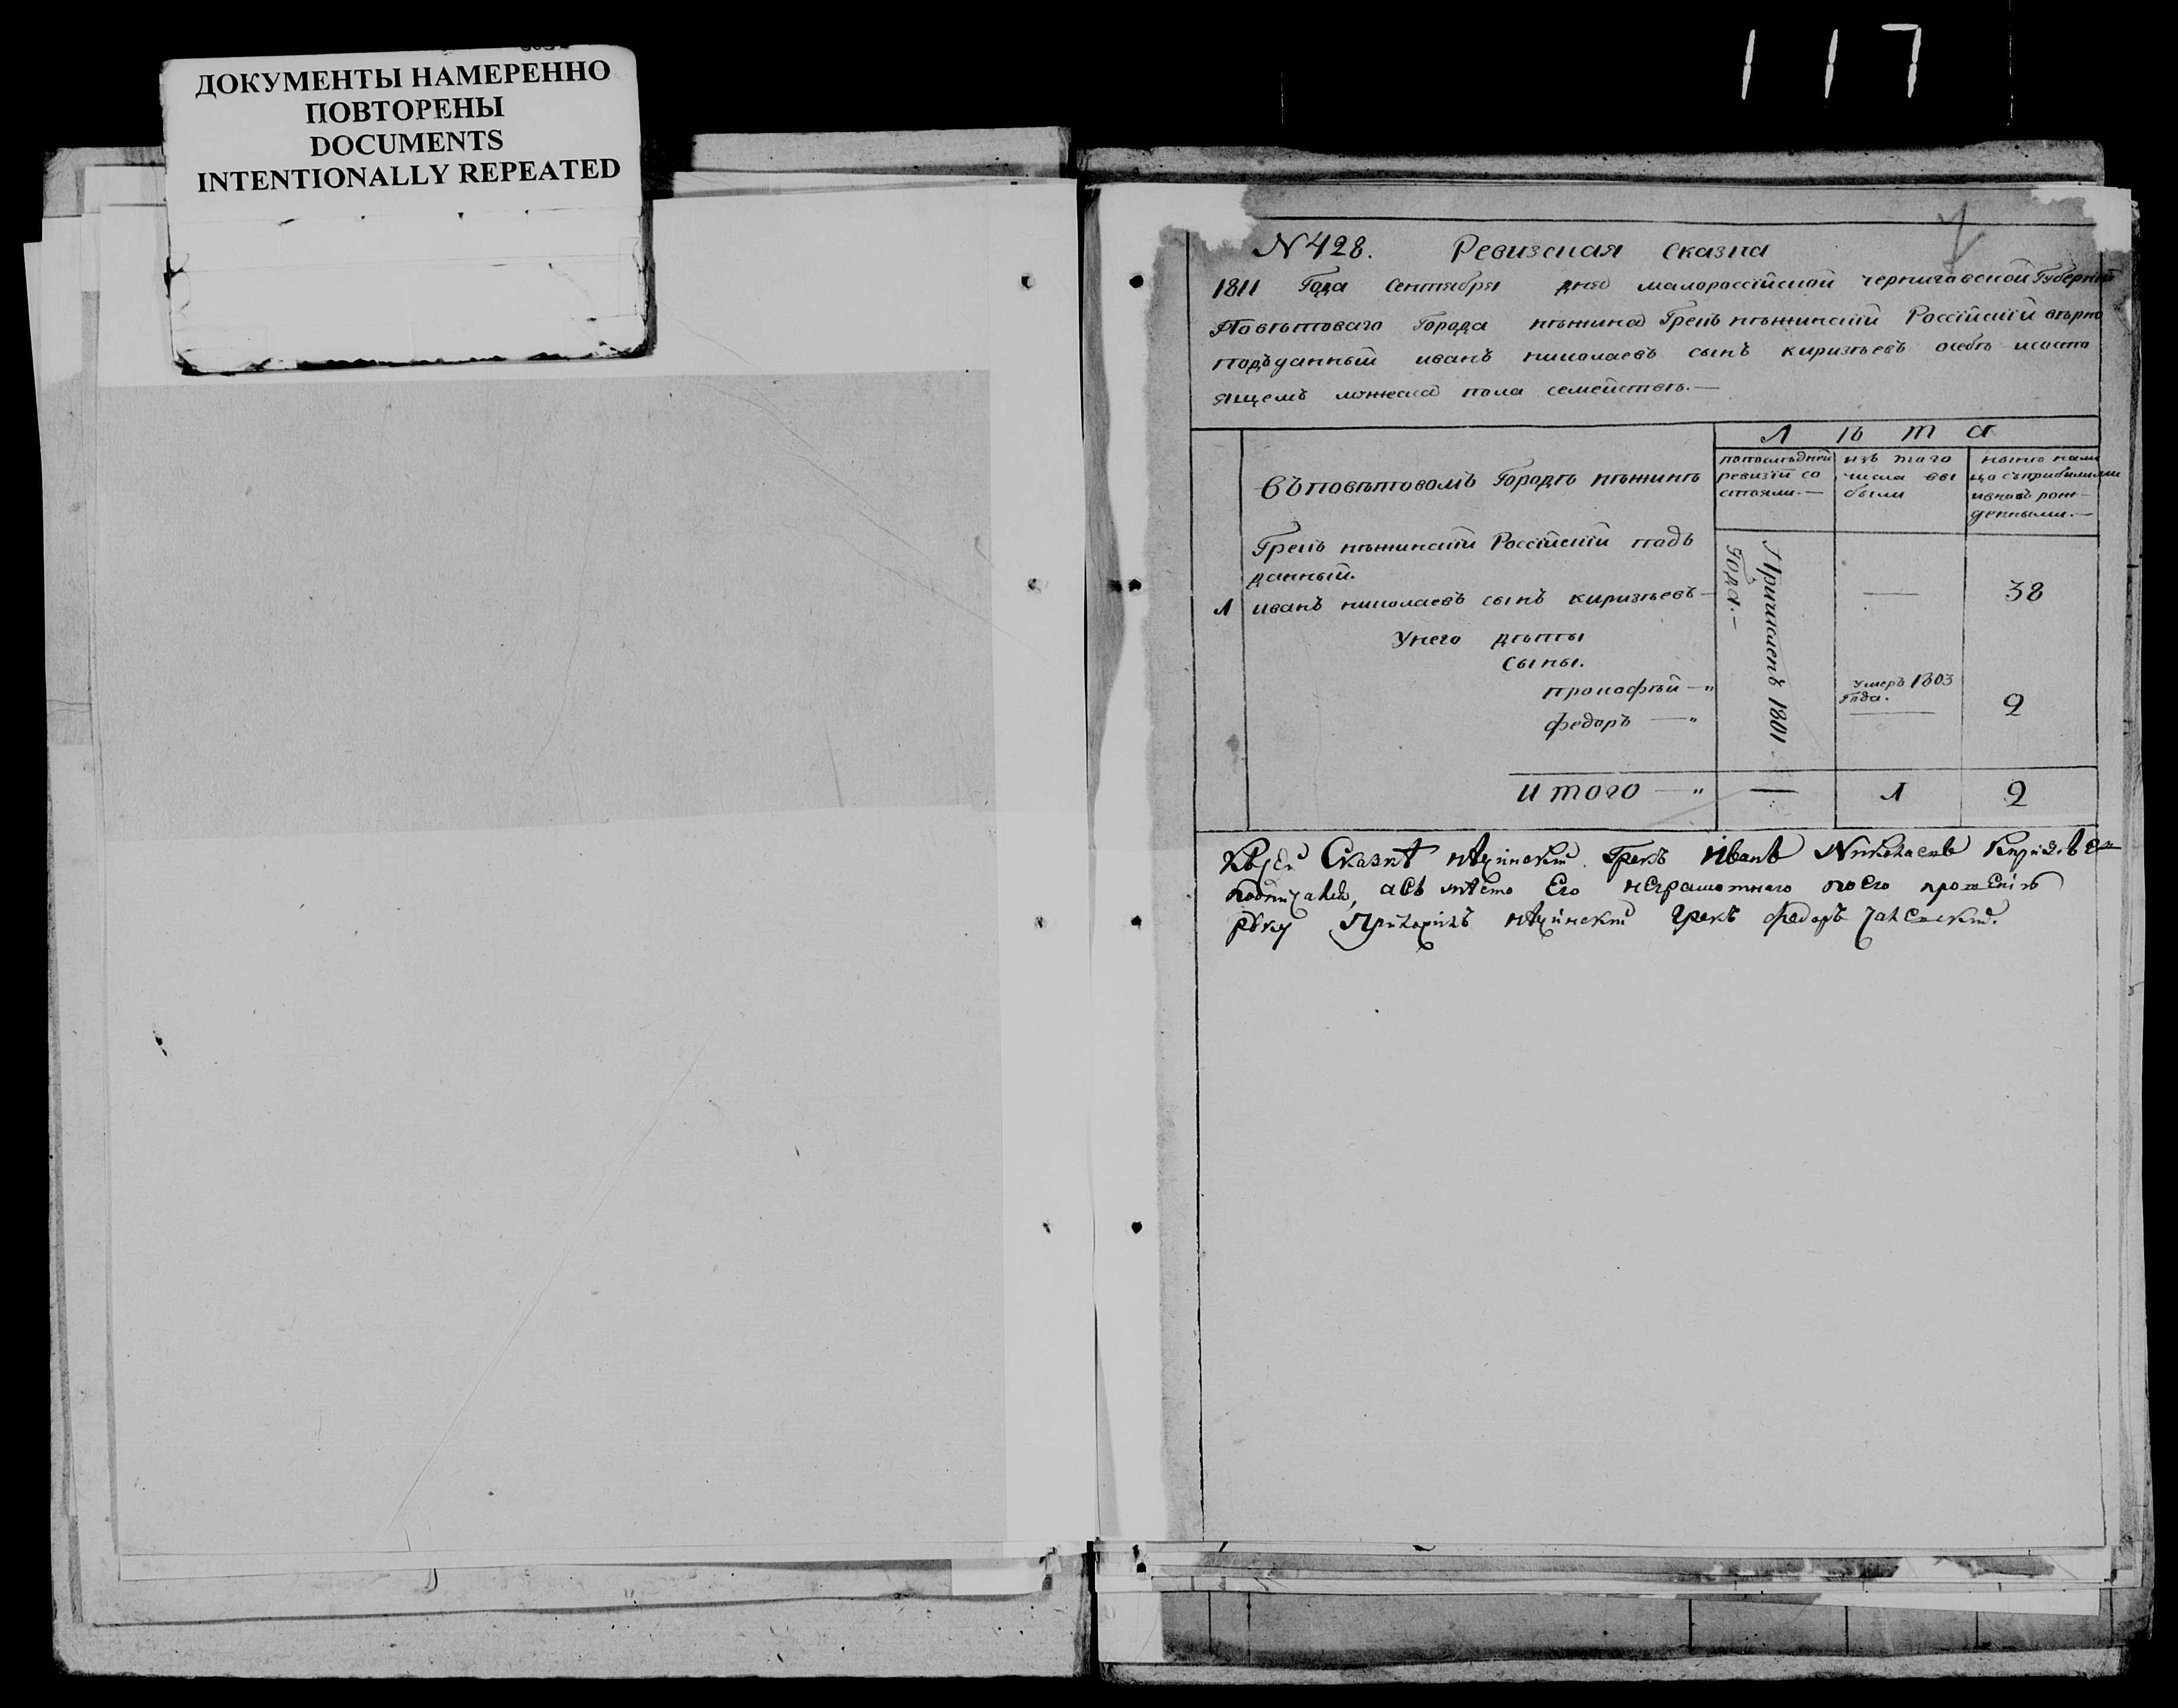 117
ДОКУМЕНТЫ НАМЕРЕННО
ПОВТОРЕНЫ
DOCUMENTS
INTENTIONALLY REPEATED
N 428. Ревизская сказка
1811 Года Сентября дня малороссїйской черниговской Губернїи
Повѣтоваго Города нѣжина Грекъ нѣжинскїй Россїйскїй вѣрно
подъданный иванъ николаевъ сынъ киризѣевъ о себѣ и состо
ящемъ мужеска пола семействѣ.—
Лѣта
въ повѣтовомъ Городѣ нѣжинѣ
по последней ревизїи со стояли.—
изъ того числа вы были
ныне на ли цо съ прибылыми и вновь рож- денными.—
Грекъ нѣжинскїй Россїйскїй подъ
данный.
1 иванъ николаевъ сынъ киризѣевъ — — 38
Причисленъ 1801 Года.—
У него дѣти
сыны.
прокофѣй — " умеръ 1803 Года.
федоръ — " — 2
итого — " — 1 2
Къ сей Сказкѣ нѣжинскїй Грекъ Иванъ Николаевъ Киризѣев
подписался, а въ мѣсто Его неграмотнаго по Его прошенїю
руку Приложилъ нѣжинскїй Грекъ федоръ